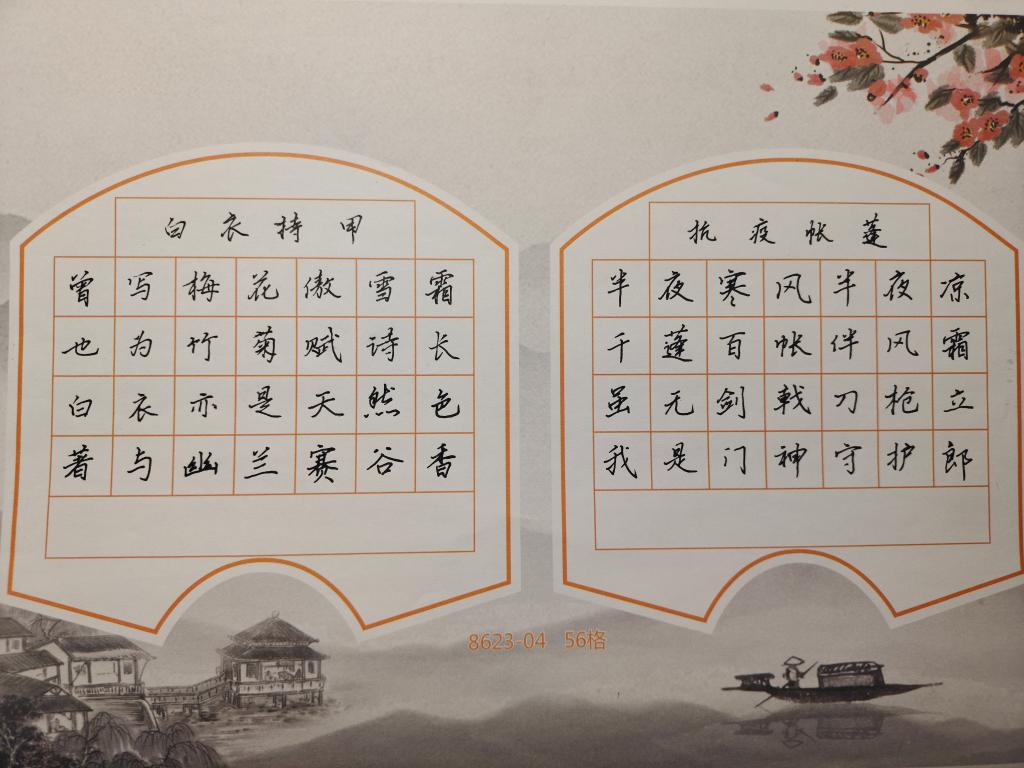 白衣持甲
曾写梅花傲雪霜
也为竹菊赋诗长
白衣亦是天然色
著与幽兰赛谷香
抗疫帐蓬
半夜寒风半夜凉
千蓬百帐伴风霜
虽无剑戟刀枪立
我是门神守护郎
8623-04 56格